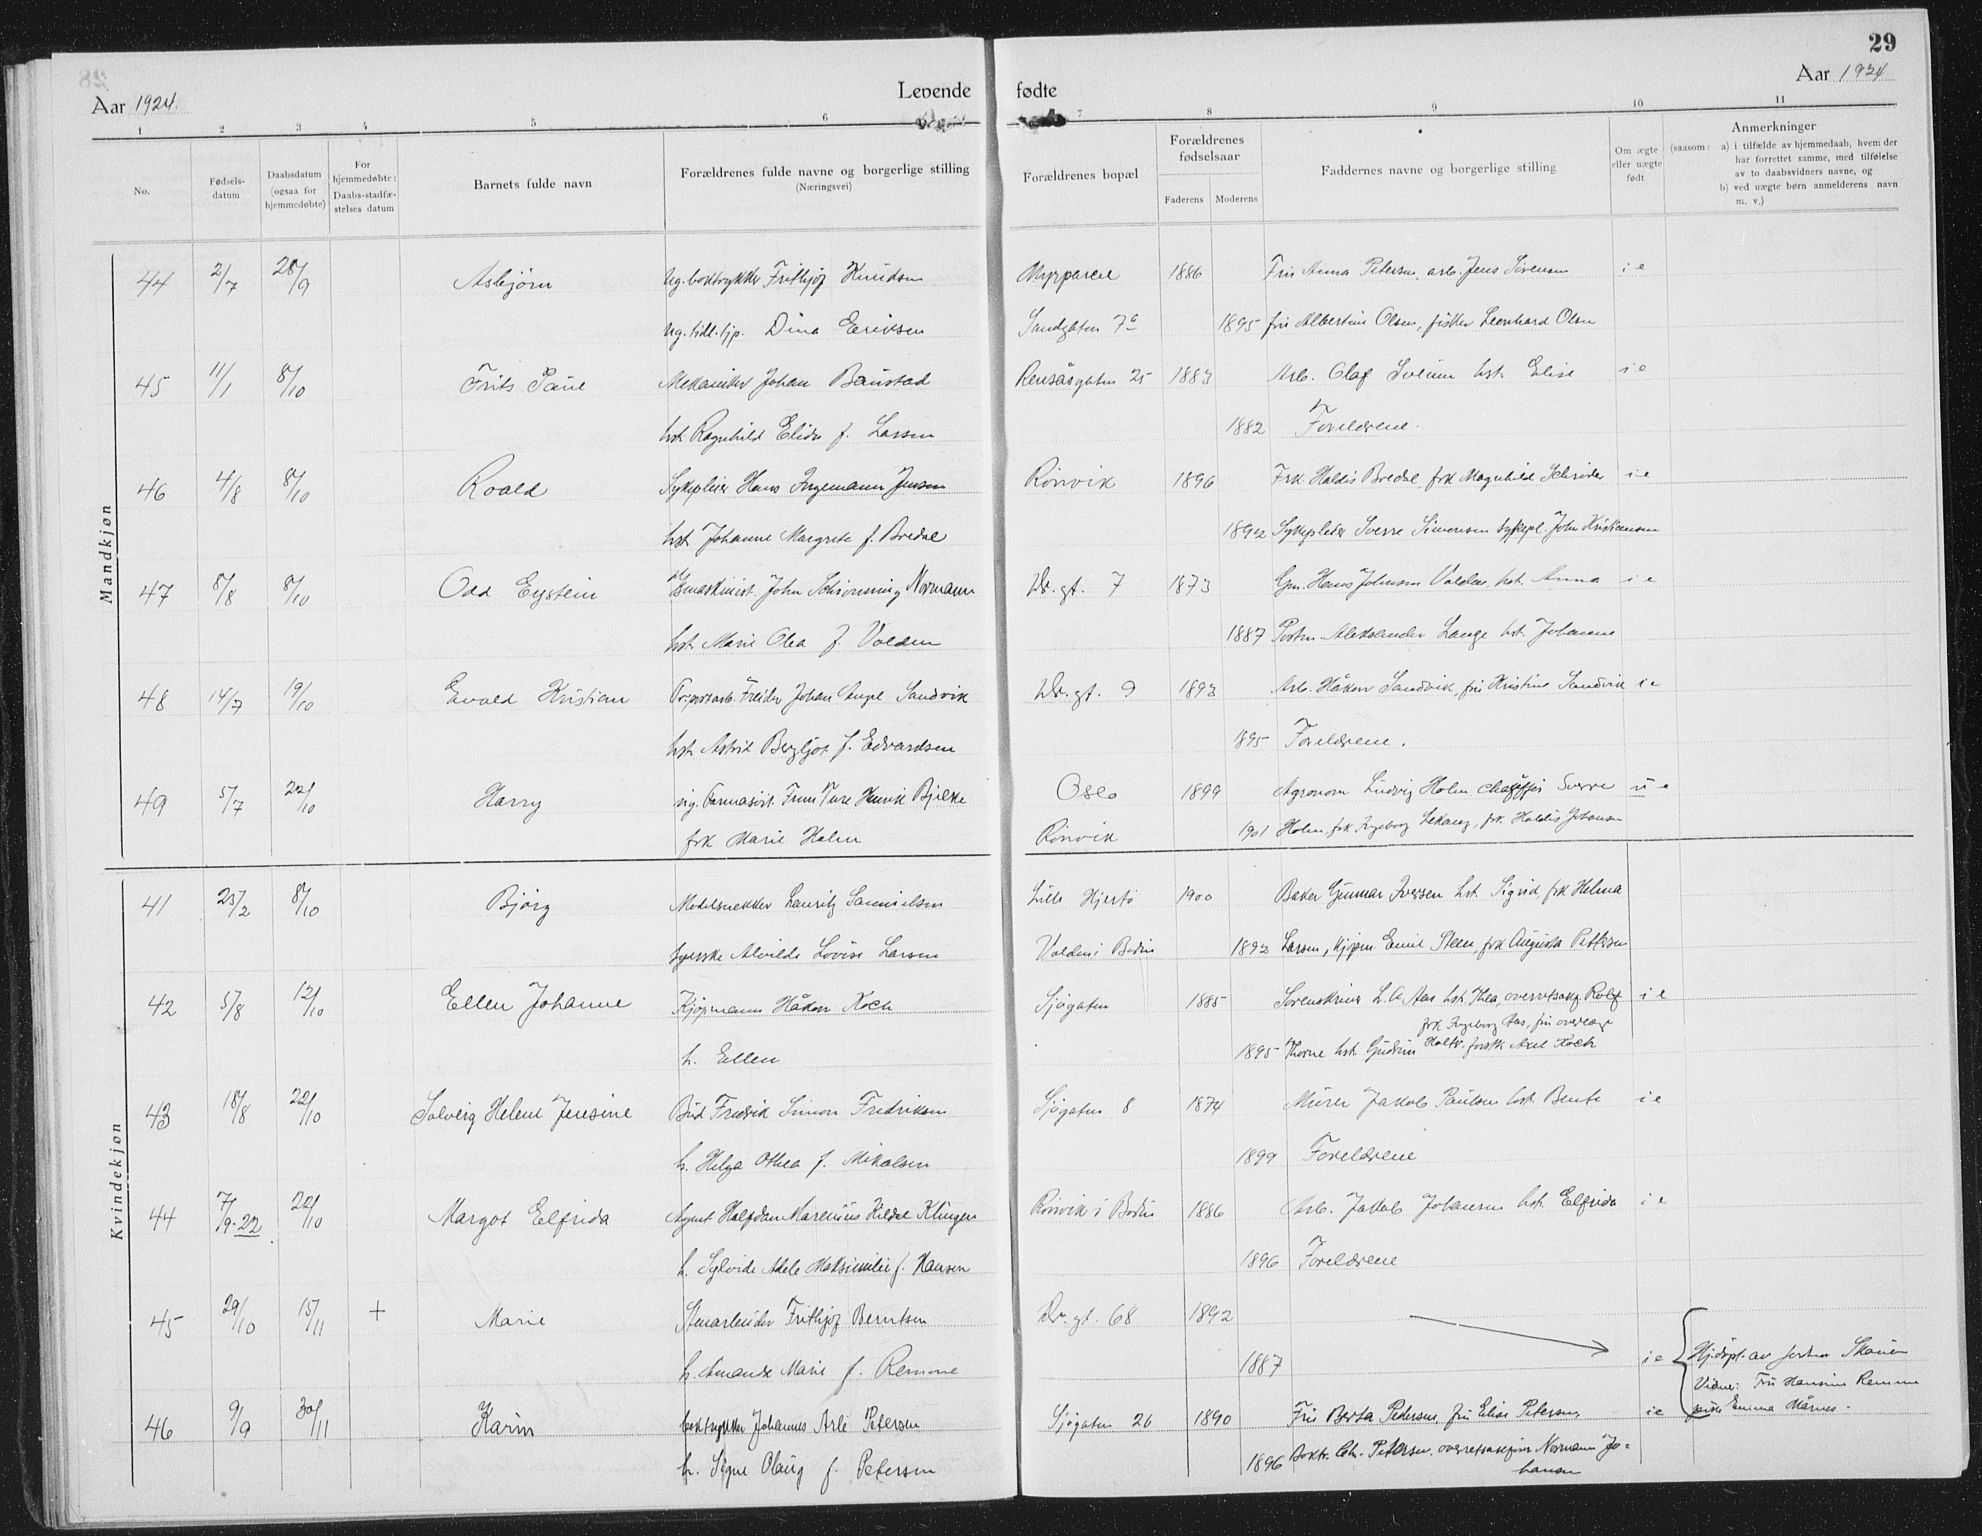 29
Aar 1924. Levende fødte Aar 1924
1 2 3 4 5 6 7 8 9 10 11
No.
Fødsels-
datum
Daabsdatum
(ogsaa for
hjemmedøbte)
For
hjemmedøbte:
Daabs-stadfæ-
stelses datum
Barnets fulde navn
Forældrenes fulde navne og borgerlige stilling
(Næringsvei)
Forældrenes bopæl
Forældrenes
fødselsaar
Faderens Moderens
Faddernes navne og borgerlige stilling
Om ægte
eller uægte
født
Anmerkninger
(saasom: a) i tilfælde av hjemmedaab, hvem der
har forrettet samme, med tilføielse
av to daabsvidners navne, og
b) ved uægte børn anmelderens navn
m. v.)
Mandkjøn
44 2/7 28/9 Asbjørn Ug. boktrykker Frithjof Knudsen 1886 Fru Anna Petersen, arb. Jens Sörensen i e
Ug. tidl. tjp. Dina Eriksen Sandgaten 7c 1895 fru Albertine Olsen, fisker Leonhard Olsen
45 11/1 8/10 Frits Paul Mekaniker Johan Baustad Rensåsgaten 25 1883 Arb. Olaf Sveum hst. Elise i e
hst. Ragnhild Elida f. Larsen 1882 Foreldrene.
46 4/8 8/10 Roald Sykepleier Hans Ingemann Jensen Rönvik 1896 Frk Haldis Bredal, frk Magnhild Schrøder i e
hst. Johanne Margrete f. Bredal 1892 Sykepleier Sverre Simonsen sykepl. John Kristiansen
47 8/8 8/10 Odd Eystein John Schjönning Normann Dr. gt. 7 1873 Gm. Hans Johnsen Valden, hst. Anna i e
hst. Marie Olea f. Valden 1887 Postm. Aleksander Lange hst. Johanne
48 14/7 19/10 Evald Kristian Johan Sandvik Dr. gt. 9 1893 Arb. Håkon Sandvik, fru Kristine Sandvik i e
hst. Astrid Bergljot f. Edvardsen 1895 Foreldrene.
49 5/7 22/10 Harry Ture Henrik Bjelke Oslo 1899 Agronom Ludvig Holm chauffør Sverre u e
frk Marie Holm Rönvik 1901 Holm, frk Ingeborg Lekang, frk. Haldis Johansen
Kvindekjøn
41 23/2 8/10 Bjørg Modelsnekker Lauritz Samuelsen Lille Hjertø 1900 Baker Gunnar Iversen hst. Sigrid, frk Helma
syerske Alvilde Lovise Larsen Valden i Bodin 1892 Larsen, kjøpm Emil Steen, frk Augusta Pettersen
42 5/8 12/10 Ellen Johanne Kjøpmann Håkon Koch Sjøgaten 1885 Sorenskriver L. A. Aas hst. Thea, overretssakf Rolf i e
frk Ingeborg Aas, fru overlæge
h. Ellen 1895 Thorne hst. Gudrun Holth. Axel Koch
43 18/8 22/10 Solveig Helene Jensine Bud Fredrik Simon Fredriksen Sjøgaten 8 1874 Murer Jakob Paulsen hst. Bente i e
h. Helga Othea f. Mikalsen 1899 Foreldrene
44 7/9-22 22/10 Margot Elfrida Agent Halfdan Marenius Hildal Klingen Rönvik i Bodin 1886 Arb. Jakob Johansen hst. Elfrida i e
h. Sylvide Adele Maksimilie f. Hansen 1896 Foreldrene
45 29/10 15/11 + Marie Stenarbeider Frithjof Berntsen Dr. gt. 68 1892
h. Amanda Marie f. Remme 1887 i e Hj.døpt av jordmor Skauen
Vidner: Fru Hansine Remme
Emma Mårnes.
46 9/9 30/11 Karin boktrykker Johannes Arli Petersen Sjøgaten 26 1890 Fru Berta Pedersen, fru Elise Petersen, i e
h. Signe Olaug f. Petersen 1896 Boktr. Chr. Petersen. overretssakfører Normann Jo-
hansen